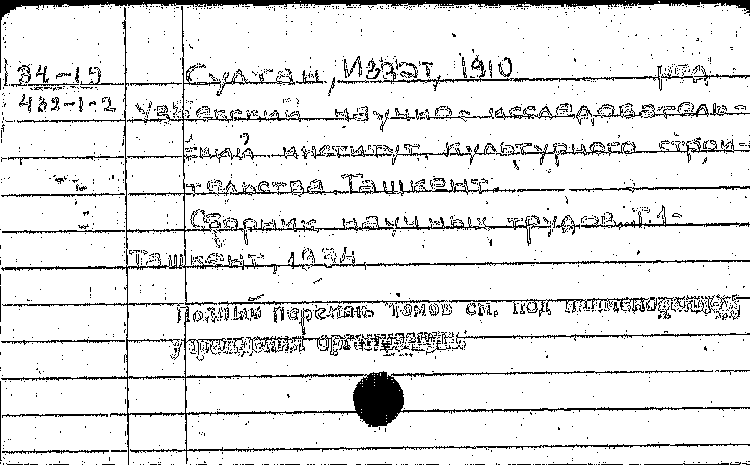 34-19 Султан, Иззат, 1910 ред
432-1-2 Узбекский научно-исследователь-
ский институт культурного строи-
тельства. Ташкент.
Сборник научных трудов. Т.1-
Ташкент, 1934.
Полный перечень томов см. под
учреждения